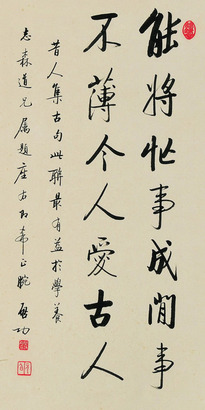 能将忙事成闲事
不薄今人爱古人
昔人集古句此联最有益於学养
志森道兄属题座右即希正腕 启功